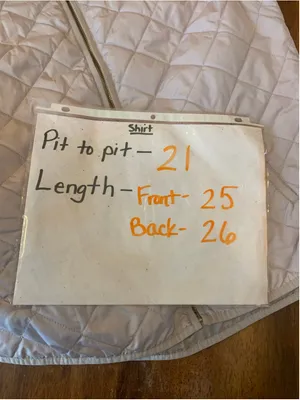 Shirt
Pit to pit - 21
Length - Front - 25
Back - 26